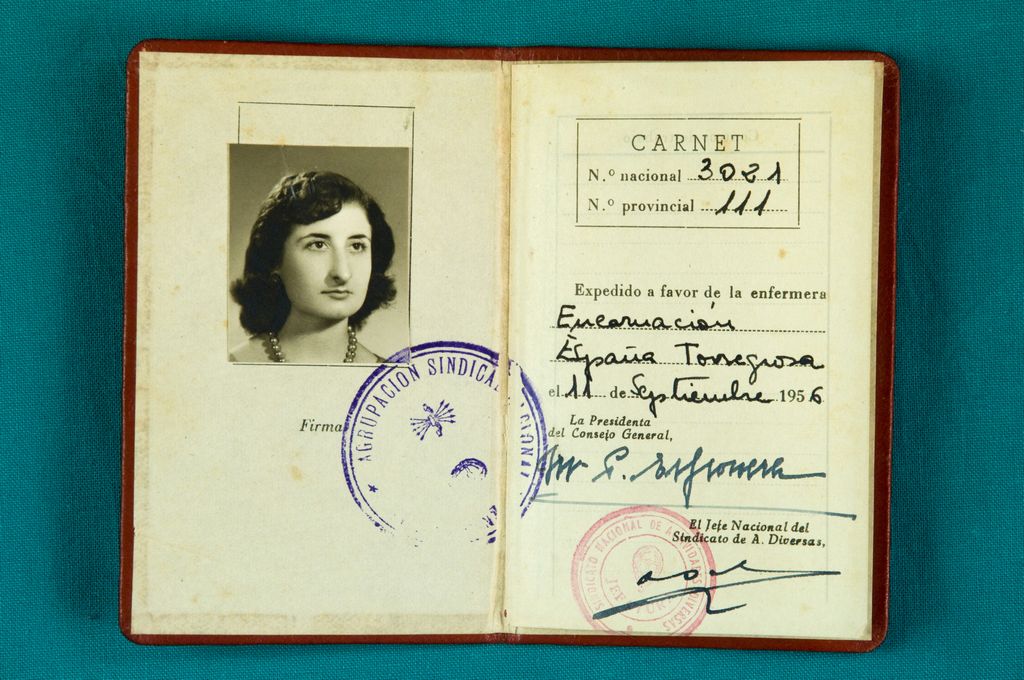 Firma
AGRUPACION SINDICAL NACIONAL
CARNET
N.º nacional 3021
N.º provincial 111
Expedido a favor de la enfermera
Encarnación
España Torregrosa
el 11 de Septiembre 1956
La Presidenta
del Consejo General,
El Jefe Nacional del
Sindicato de A. Diversas,
SINDICATO NACIONAL DE ACTIVIDADES DIVERSAS